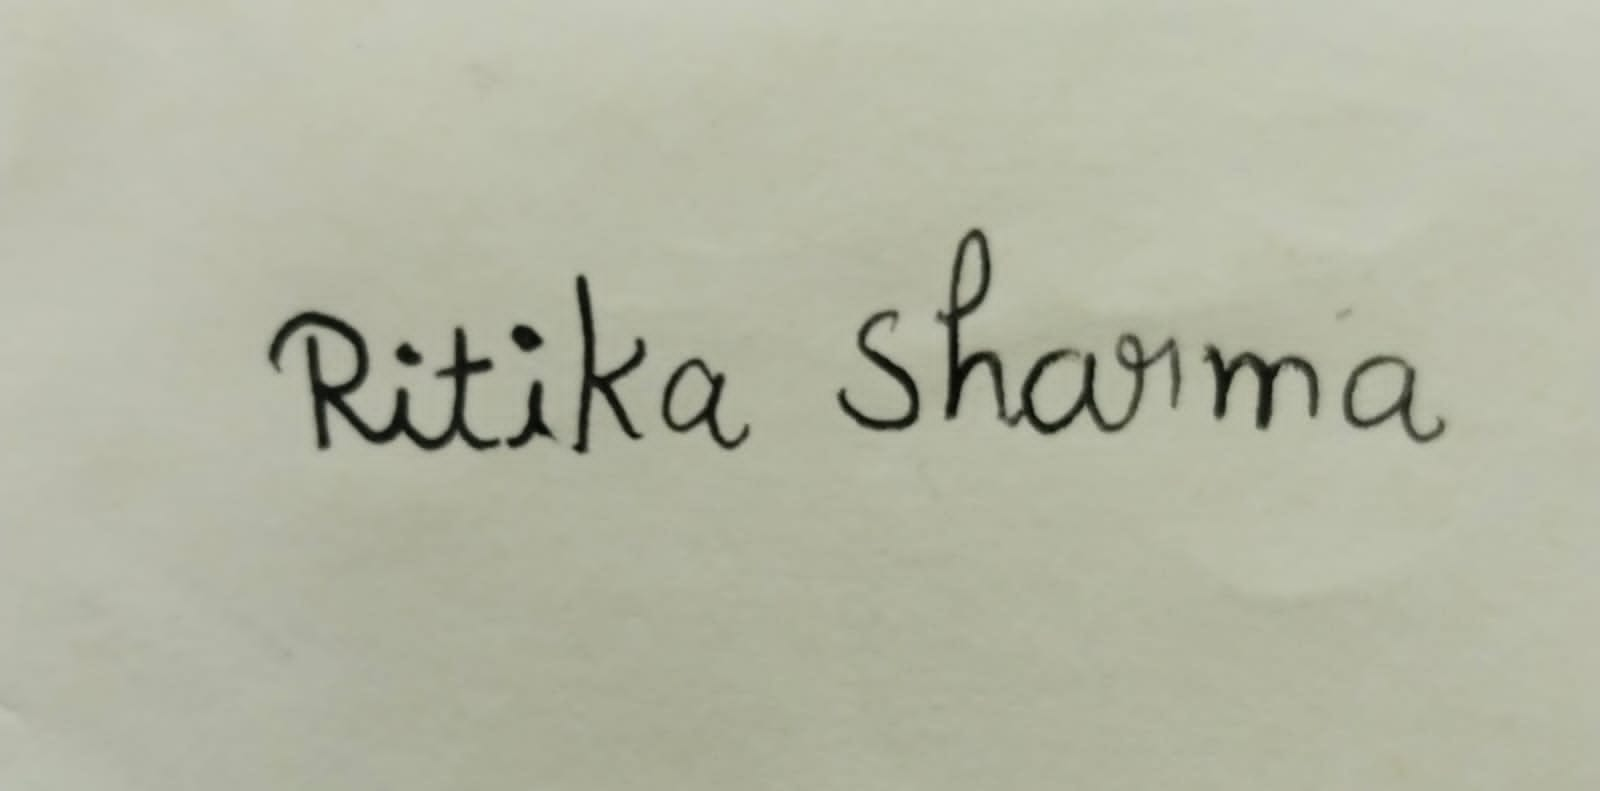 Ritika Sharma